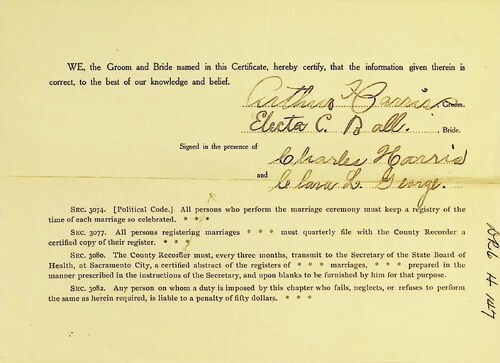 WE, the Groom and Bride named in this Certificate, hereby certify, that the information given therein is
correct, to the best of our knowledge and belief.
Arthur Harris, Groom.
Electa C. Ball. Bride.
Signed in the presence of
Charles Harris
and
Clara L. George.
SEC. 3074. [Political Code.] All persons who perform the marriage ceremony must keep a registry of
the time of each marriage so celebrated. * * *
SEC. 3077. All persons registering marriages * * * must quarterly file with the County Recorder
a certified copy of their register. * * *
SEC. 3080. The County Recorder must, every three months, transmit to the Secretary of the State Board of
Health, at Sacramento City, a certified abstract of the registers of * * * marriages, * * * prepared in the
manner prescribed in the instructions of the Secretary, and upon blanks to be furnished by him for that purpose.
SEC. 3082. Any person on whom a duty is imposed by this chapter who fails, neglects, or refuses to perform
the same as herein required, is liable to a penalty of fifty dollars. * * *